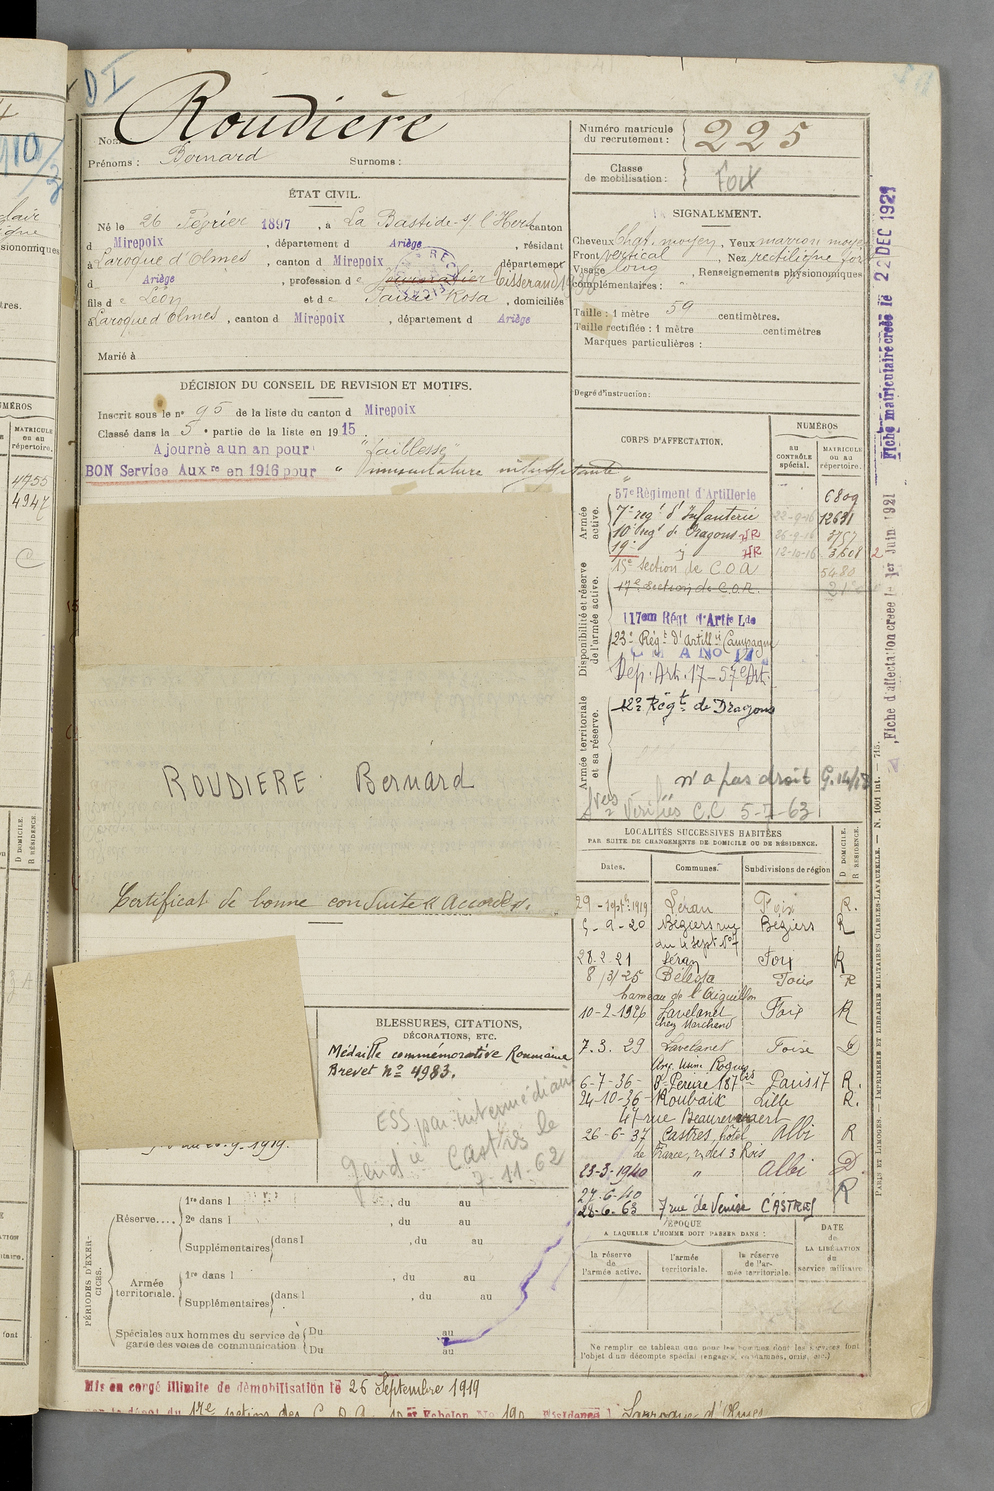 DI
Nom Roudière
Prénoms : Bernard Surnoms :
ÉTAT CIVIL.
Né le 26 Février 1897, à La Bastide-s/ l'Hers canton
d Mirepoix, département d Ariège, résidant
à Laroque d'Olmes, canton d Mirepoix département
d Ariège, profession d e Tisserand
fils d e Léon et d e Rosa, domiciliés
à Laroque d'Olmes, canton d Mirepoix, département d Ariège
Marié à
DÉCISION DU CONSEIL DE REVISION ET MOTIFS.
Inscrit sous le n° 95 de la liste du canton d Mirepoix
Classé dans la 5e partie de la liste en 1915.
Ajourné a un an pour "faiblesse"
BON Service Auxre en 1916 pour "musculature insuffisante"
ROUDIERE Bernard
Certificat de bonne conduite « Accordé ».
BLESSURES, CITATIONS,
DÉCORATIONS, ETC.
Médaille commémorative Roumaine
Brevet n° 4983.
ESS par intermédiaire
Gendie Castres le
7-11-62
9.1919.
PÉRIODES D'EXERCICES.
Réserve....
1re dans l , du au
2e dans l , du au
Supplémentaires dans l , du au
Armée territoriale.
1re dans l , du au
Supplémentaires dans l , du au
Spéciales aux hommes du service de garde des voies de communication
Du au
Du au
Mis en congé illimité de démobilisation le 26 Septembre 1919
Numéro matricule du recrutement : 225
Classe de mobilisation : Foix
SIGNALEMENT.
Cheveux chat. moyen, Yeux marron moyen
Front vertical, Nez rectiligne fort
Visage long, Renseignements physionomiques
complémentaires : "
Taille : 1 mètre 59 centimètres.
Taille rectifiée : 1 mètre centimètres
Marques particulières :
Degré d'instruction :
CORPS D'AFFECTATION.
NUMÉROS
AU CONTRÔLE spécial.
MATRICULE ou au répertoire.
Armée active.
57e Régiment d'Artillerie 6809
7e régt d'Infanterie 22-9-16 12631
10e régt de Dragons NR 26-9-16 3757
19e " NR 12-10-16 3608
Disponibilité et réserve de l'armée active.
15e section de C.O.A 5480
17e section de C.O.A.
117em Régt d'Artie Lde
23e Régt d'Artillie Campagne
C M A No 17
Dép. Art. 17 - 57e Art.
Armée territoriale et sa réserve.
Régt de Dragons
n'a pas droit G.14/18
Vérifiés C.C 5-7-63
LOCALITÉS SUCCESSIVES HABITÉES
PAR SUITE DE CHANGEMENTS DE DOMICILE OU DE RÉSIDENCE.
D DOMICILE. R RÉSIDENCE.
Dates. Communes. Subdivisions de région
29-septe 1919 Léran Foix R.
5-9-20 Béziers rue Béziers R
du 4 Sept. N°7
28.2.21 Léran Foix R
8/3/25 Bélesta Foix R
hameau de l'Aiguillon
10-2-1926 Lavelanet Foix R
chez Marchend
7.3.29 Lavelanet Foix D
6-7-36- Pereire 187bis Paris 17 R.
24-10-36- Roubaix Lille R.
47 rue Beaurewaert
26-6-37 Castres, hôtel Albi R
de France, r. des 3 Rois
23-3-1940 " Albi D.
27-6-40 R
28-6-63 7 rue de Venise CASTRES
ÉPOQUE
A LAQUELLE L'HOMME DOIT PASSER DANS :
la réserve de l'armée active.
l'armée territoriale.
la réserve de l'armée territoriale.
DATE de LA LIBÉRATION du service militaire
Ne remplir ce tableau que pour les hommes dont les services font
l'objet d'un décompte spécial (engagés, condamnés, omis, etc.)
Fiche matriculaire créée le 22 DEC 1921
Fiche d'affectation créée le 1er Juin 1921
PARIS ET LIMOGES. — IMPRIMERIE ET LIBRAIRIE MILITAIRES CHARLES-LAVAUZELLE. — N. 1001 int. — 715.
NUMÉROS
MATRICULE ou au répertoire.
4755
4947
D DOMICILE. R RÉSIDENCE.